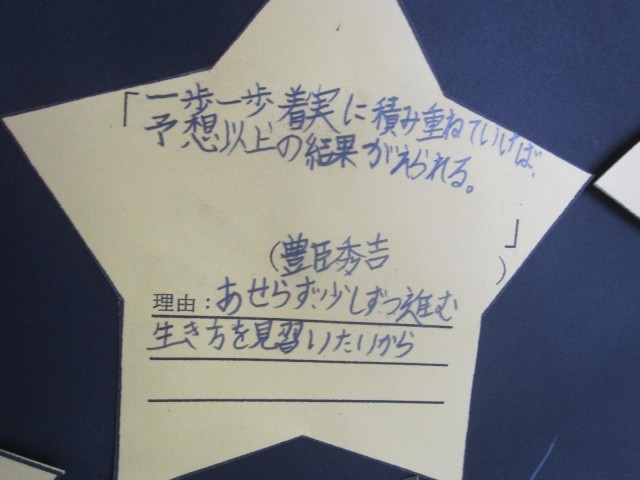 「一歩一歩着実に積み重ねていけば、
予想以上の結果がえられる。
」
(豊臣秀吉
)
理由：あせらず、少しずつ進む
生き方を見習いたいから